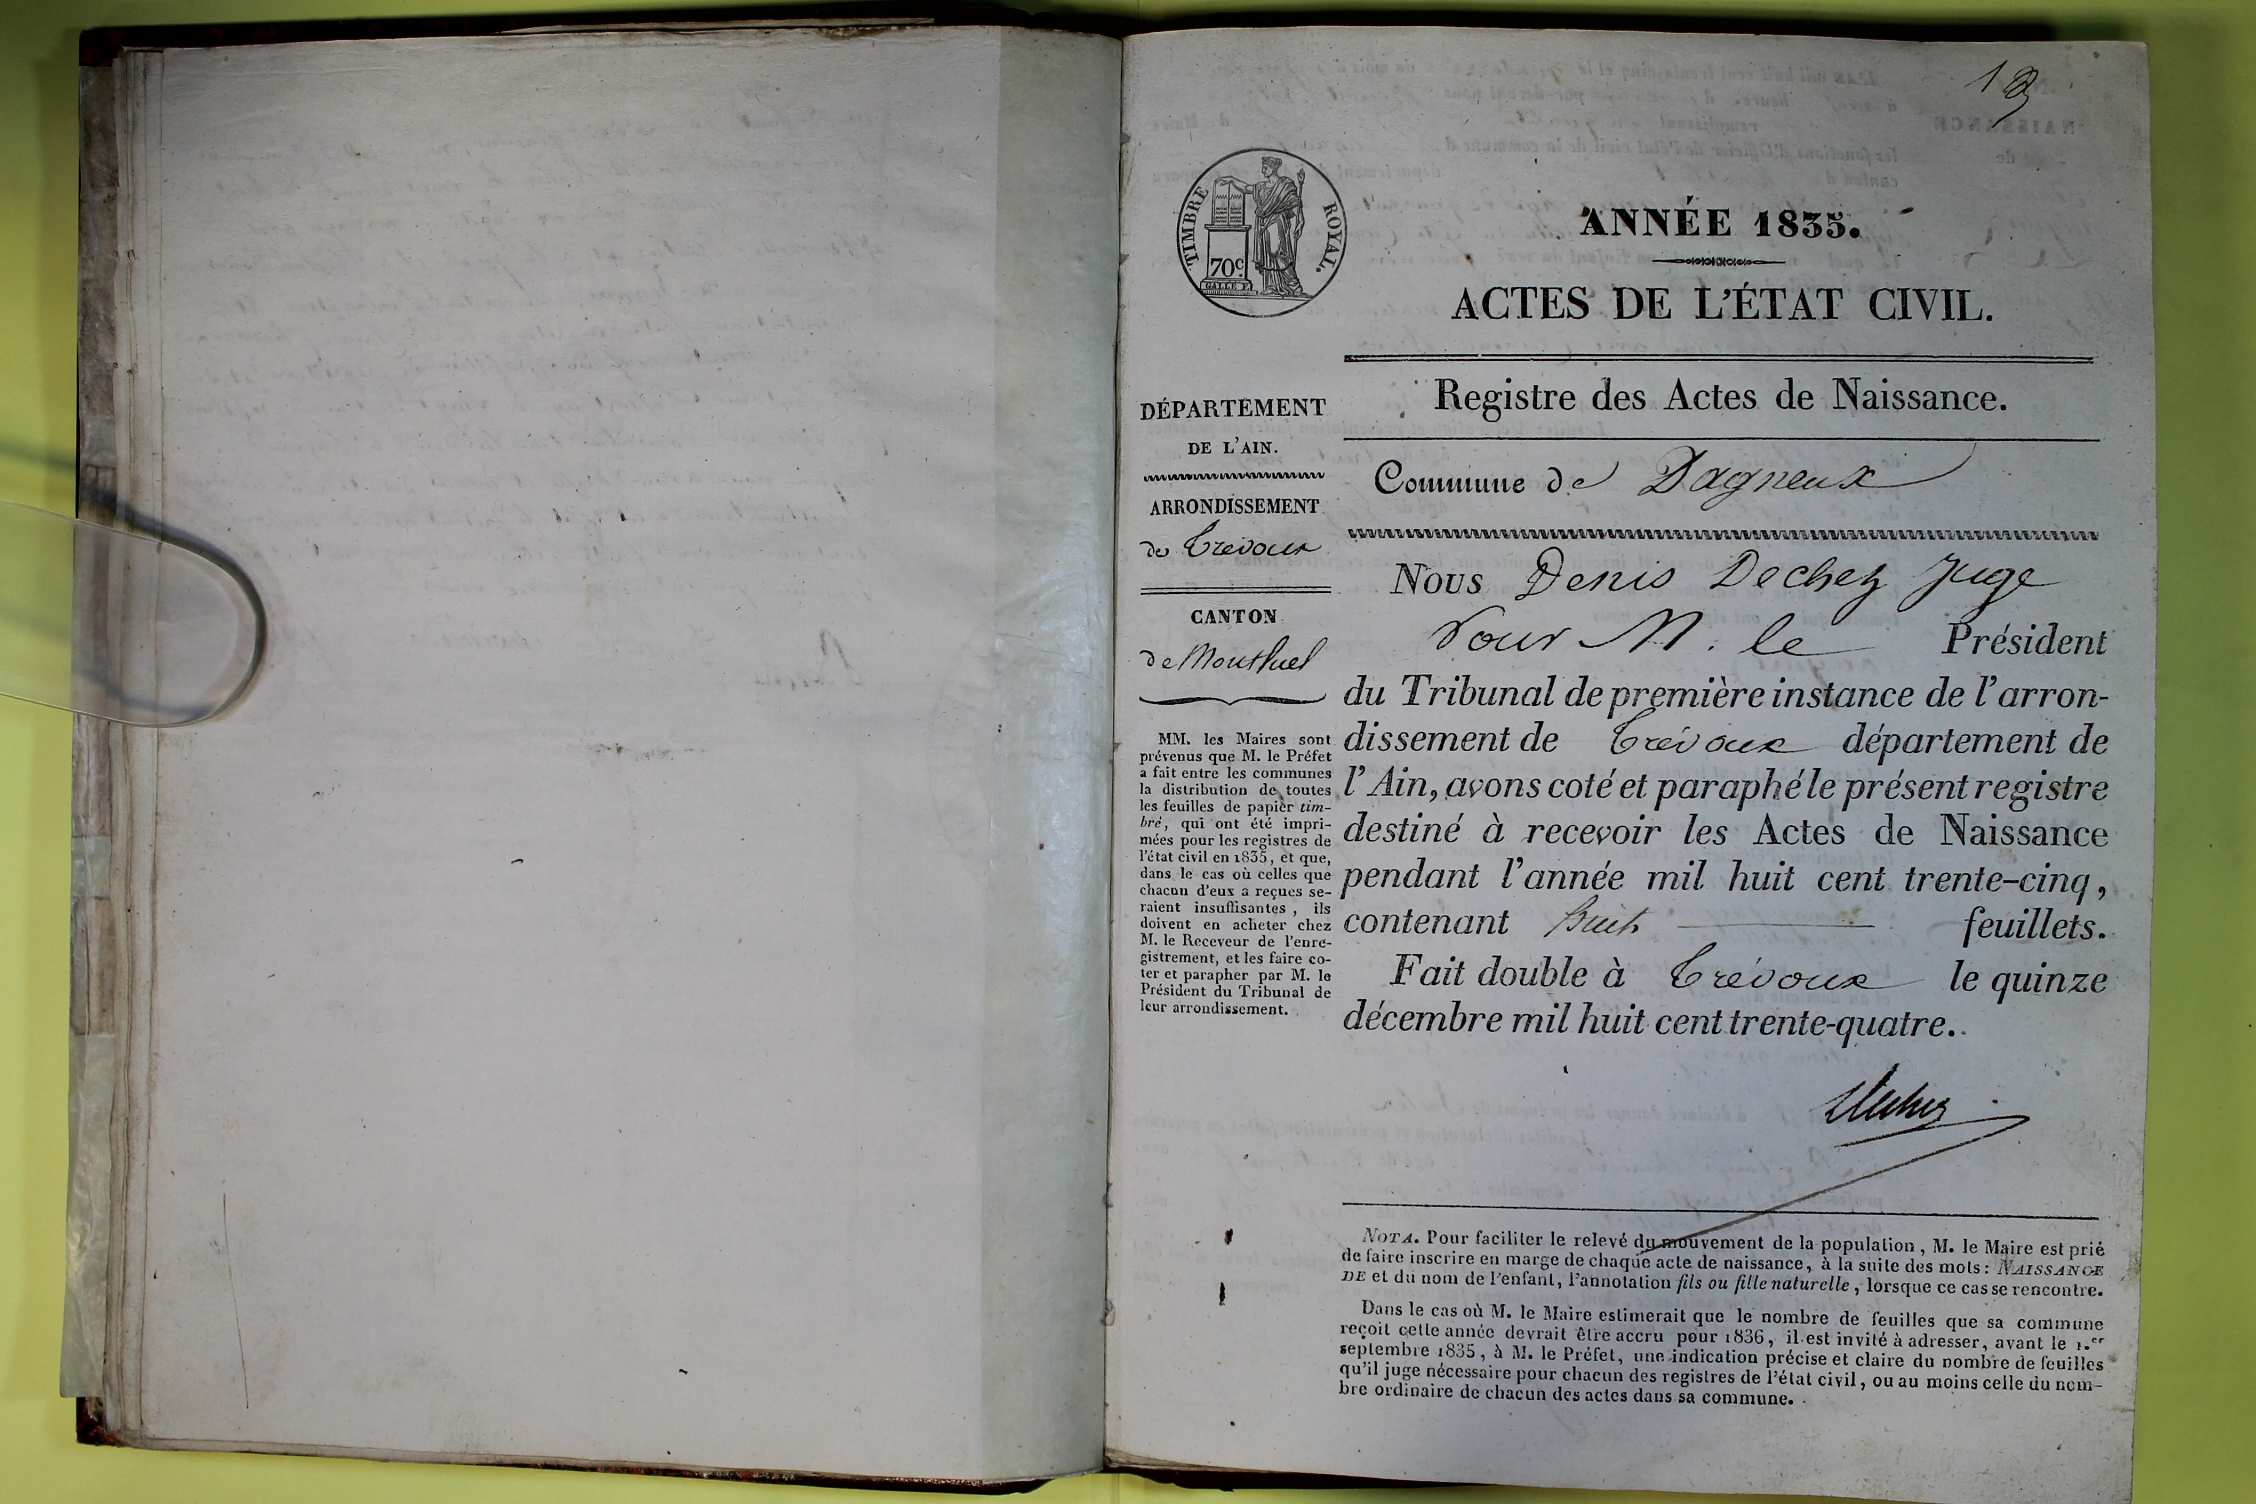 TIMBRE ROYAL.
70c.
GALLE F.
ANNÉE 1835.
ACTES DE L'ÉTAT CIVIL.
Registre des Actes de Naissance.
Commune de Dagneux
DÉPARTEMENT
DE L'AIN.
ARRONDISSEMENT
de Trévoux
CANTON
de Montluel
MM. les Maires sont
prévenus que M. le Préfet
a fait entre les communes
la distribution de toutes
les feuilles de papier tim-
bré, qui ont été impri-
mées pour les registres de
l'état civil en 1835, et que,
dans le cas où celles que
chacun d'eux a reçues se-
raient insuffisantes, ils
doivent en acheter chez
M. le Receveur de l'enre-
gistrement, et les faire co-
ter et parapher par M. le
Président du Tribunal de
leur arrondissement.
Nous Denis Dechez Juge
Pour M. le Président
du Tribunal de première instance de l'arron-
dissement de Trévoux département de
l'Ain, avons coté et paraphé le présent registre
destiné à recevoir les Actes de Naissance
pendant l'année mil huit cent trente-cinq,
contenant huit feuillets.
Fait double à Trévoux le quinze
décembre mil huit cent trente-quatre.
Dechez
NOTA. Pour faciliter le relevé du mouvement de la population, M. le Maire est prié
de faire inscrire en marge de chaque acte de naissance, à la suite des mots: NAISSANCE
DE et du nom de l'enfant, l'annotation fils ou fille naturelle, lorsque ce cas se rencontre.
Dans le cas où M. le Maire estimerait que le nombre de feuilles que sa commune
reçoit cette année devrait être accru pour 1836, il est invité à adresser, avant le 1.er
septembre 1835, à M. le Préfet, une indication précise et claire du nombre de feuilles
qu'il juge nécessaire pour chacun des registres de l'état civil, ou au moins celle du nom-
bre ordinaire de chacun des actes dans sa commune.